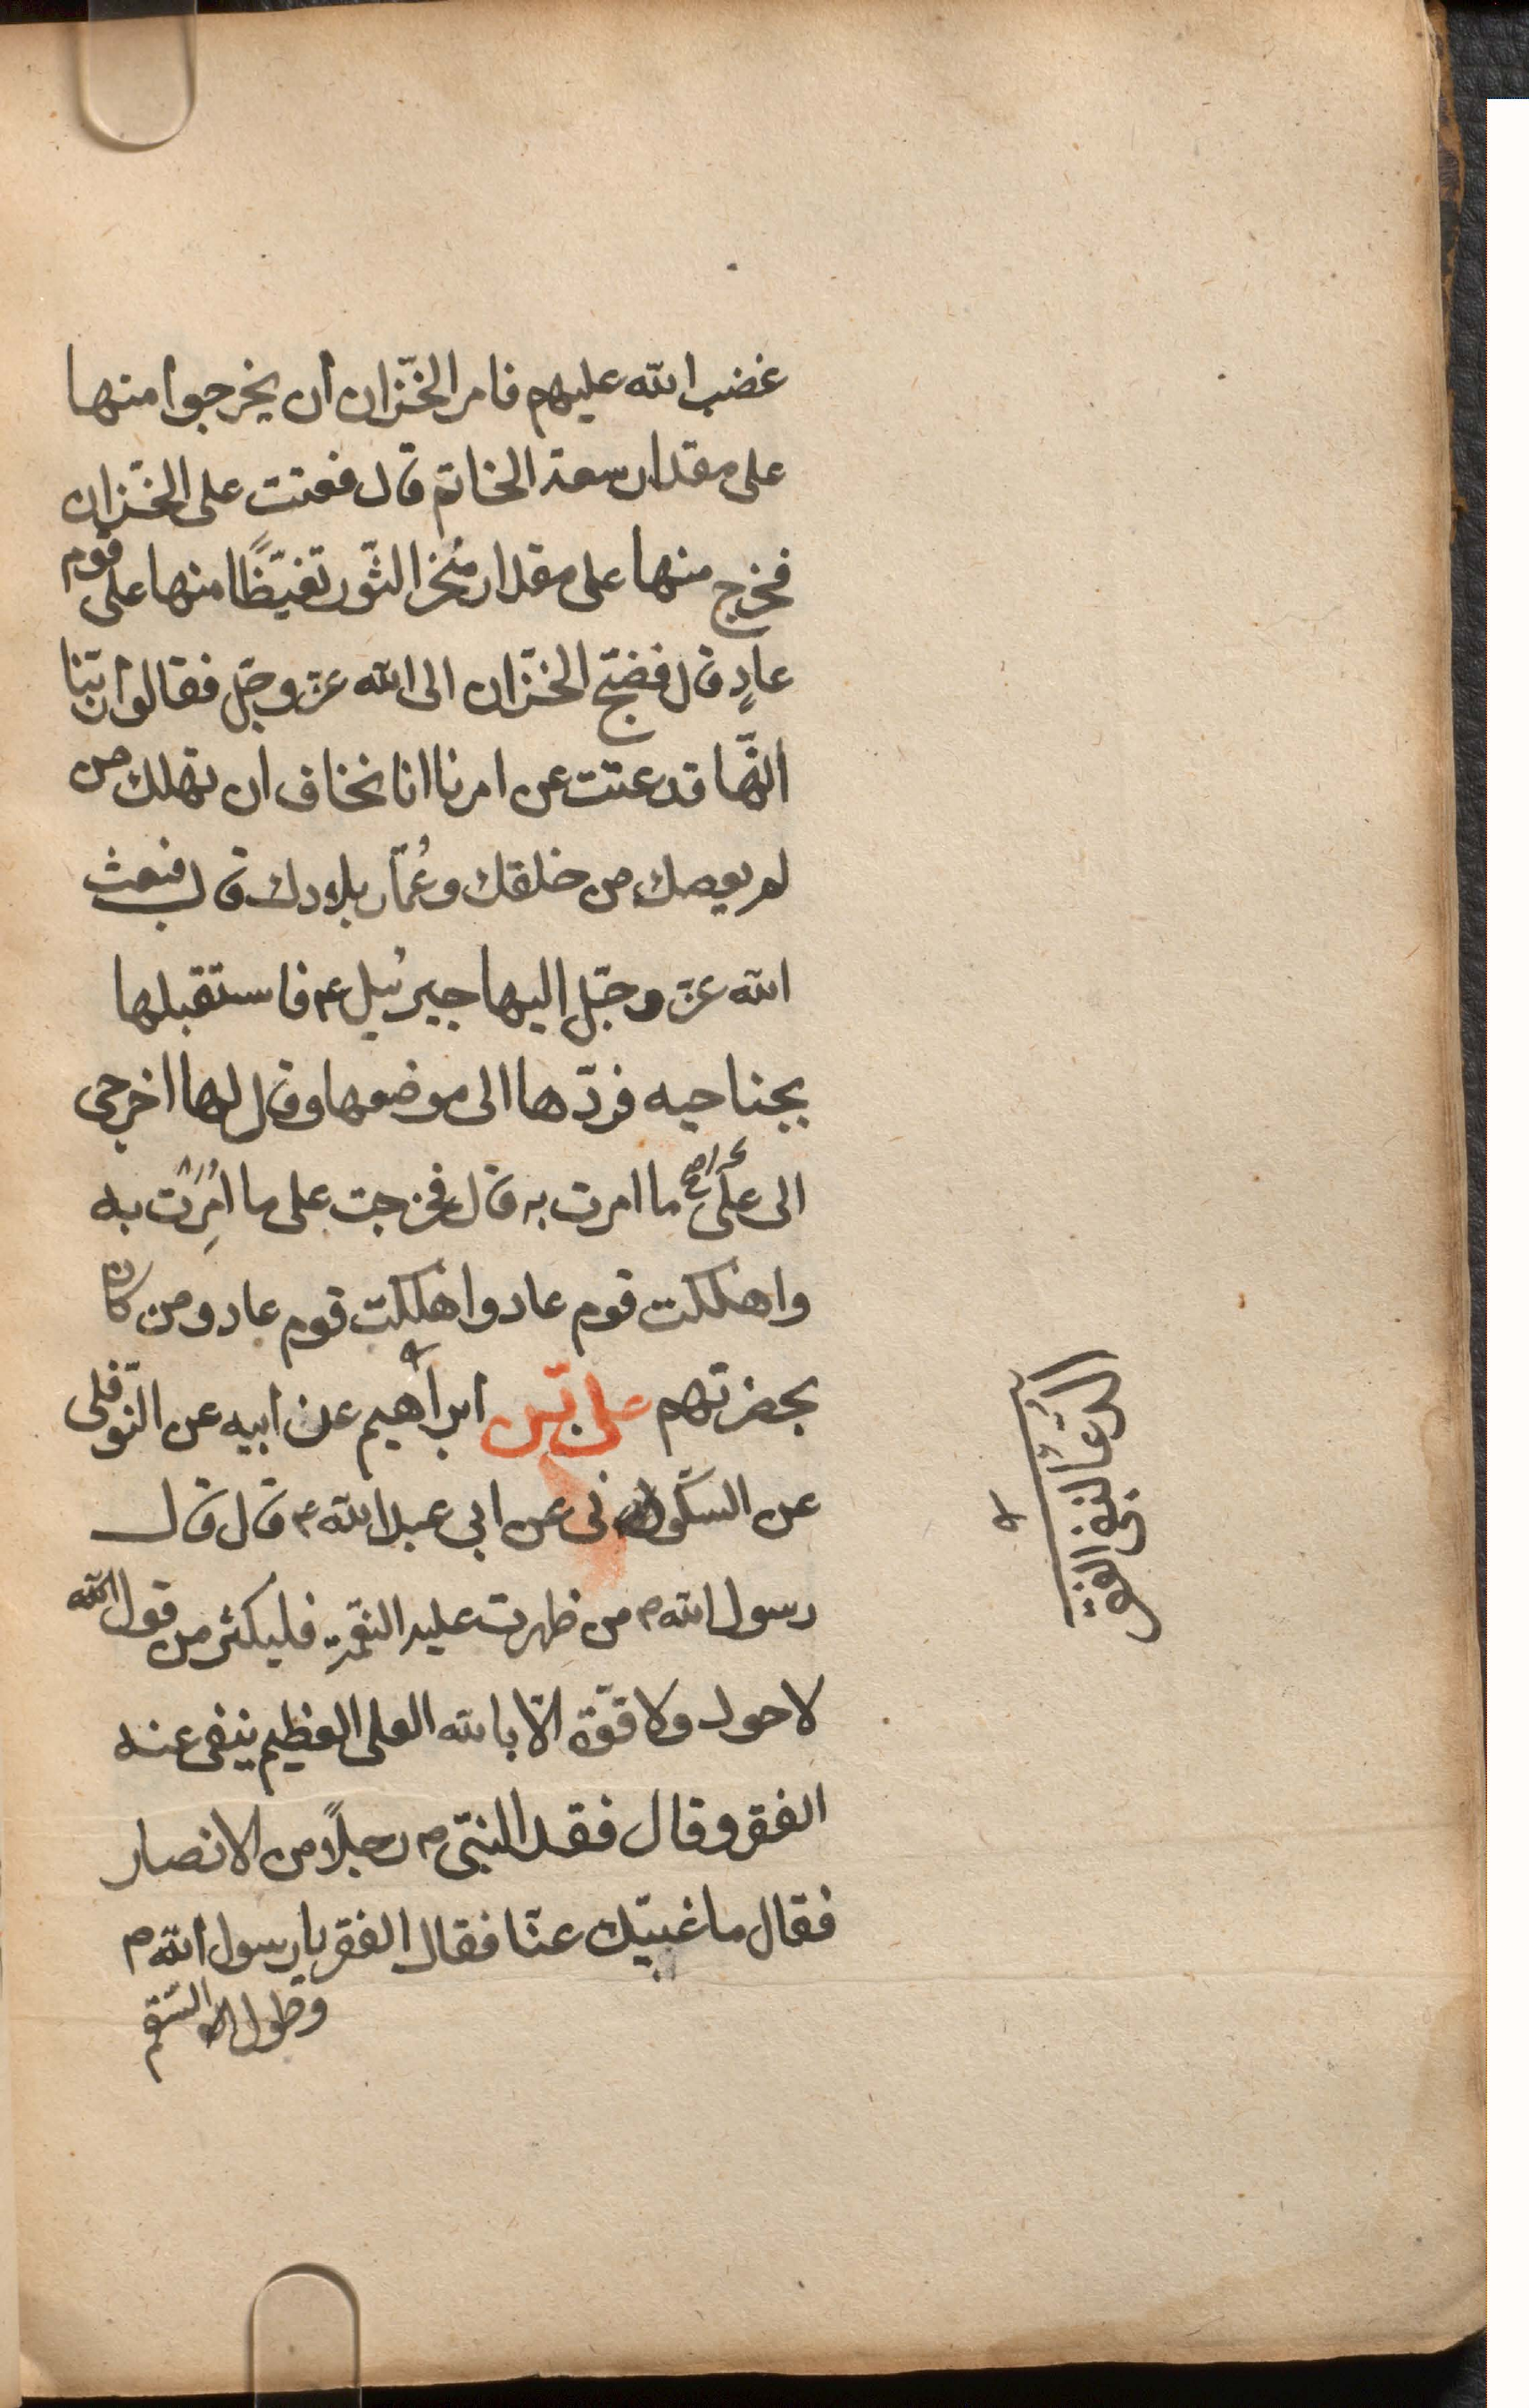 غضب الله عليهم فامر الخزّان ان يخرجوا منها
على مقدار سعة الخاتم قال فعتت على الخزّان
فخرج منها على مقدار مُنخر الثّور تغيّظًا منها على قوم
عادٍ قال فضجّ الخزّان الى الله عزّ وجّل فقالوا ربّنا
انّها قد عتت عن امرنا انا نخاف ان تهلك من
لم يعصك من خلقك وعُمّار بلادك قال فبعث
الله عزّ وجّل اليها جبرئيل ء فاستقبلها
بجناحيه فردّها الى موضعها وقال لها اخرجى
الى على ما امرت به قال فخرجت على ما اُمِرَت به
واهلكت قوم عاد واهلكت قوم عاد ومن كان
بحضرتهم على بن ابراهيم عن ابيه عن النّوفلى
عن السّكونى عن ابى عبد الله ء قال قال
رسول الله ص من ظهرت عليه النعمة فليكثر من قول الله
لا حول ولا قوّة الّا بالله العلى العظيم ينفى عنه
الفقر وقال فقد النبّى ص رجلاً من الانصار
فقال ما غيبّك عنّا فقال الفقر يا رسول الله ص
وطول السّقم
الدعا لنفى الفقر